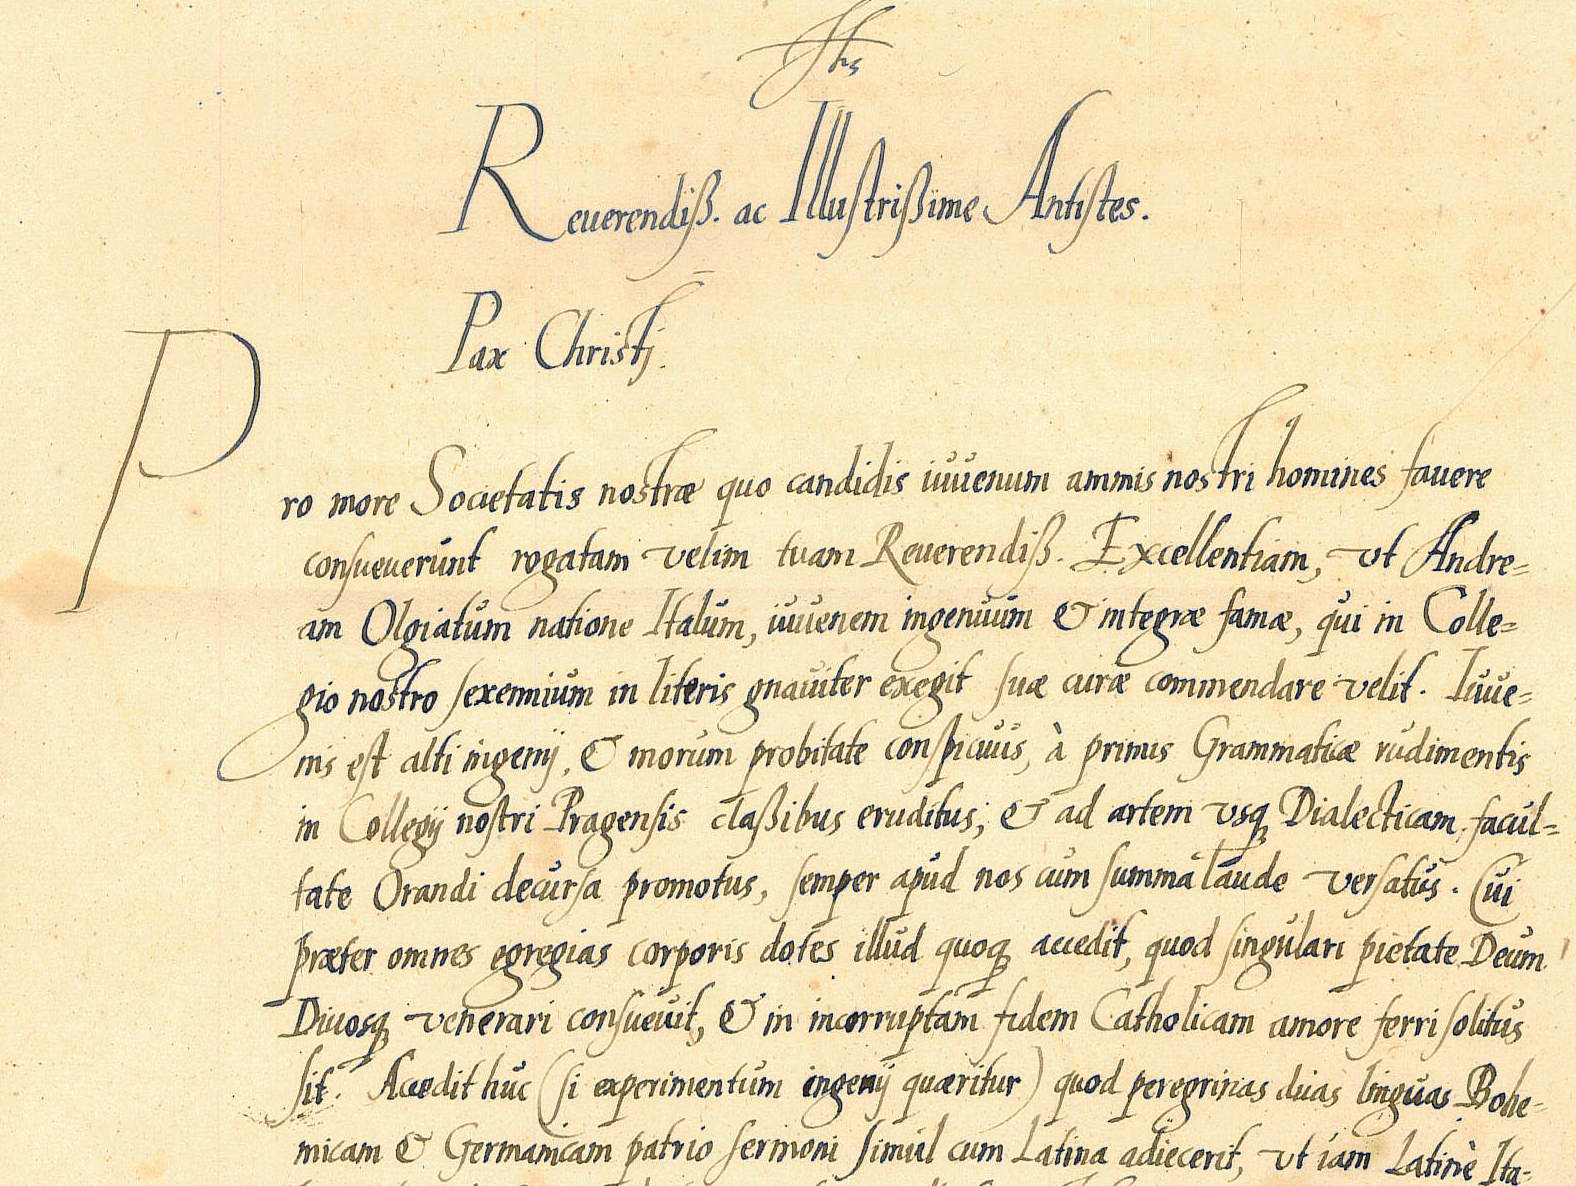 Jhs
Reuerendiß. ac Illustrißime Antistes.
Pax Christj.
Pro more Societatis nostræ quo candidis iuuenum animis nostri homines fauere
consueuerunt rogatam velim tuam Reuerendiß. Excellentiam, vt Andre=
am Olgiatum natione Italum, iuuenem ingenuum & integræ famæ, qui in Colle=
gio nostro sexennium in literis gnauiter exegit suæ curæ commendare velit. Iuue=
nis est alti ingenij, & morum probitate conspicuus, à primis Grammaticæ rudimentis
in Collegij nostri Pragensis claßibus eruditus, & ad artem vsq Dialecticam, facul=
tate Orandi decursa promotus, semper apud nos cum summa laude versatus. Cui
præter omnes egregias corporis dotes illud quoq accedit, quod singulari pietate Deum
Diuosq venerari consueuit, & in incorruptam fidem Catholicam amore ferri solitus
sit. Accedit huc (si experimentum ingenij quæritur) quod peregrinas duas linguas Bohe=
micam & Germanicam patrio sermoni simul cum Latina adiecerit, vt iam Latinè Ita=